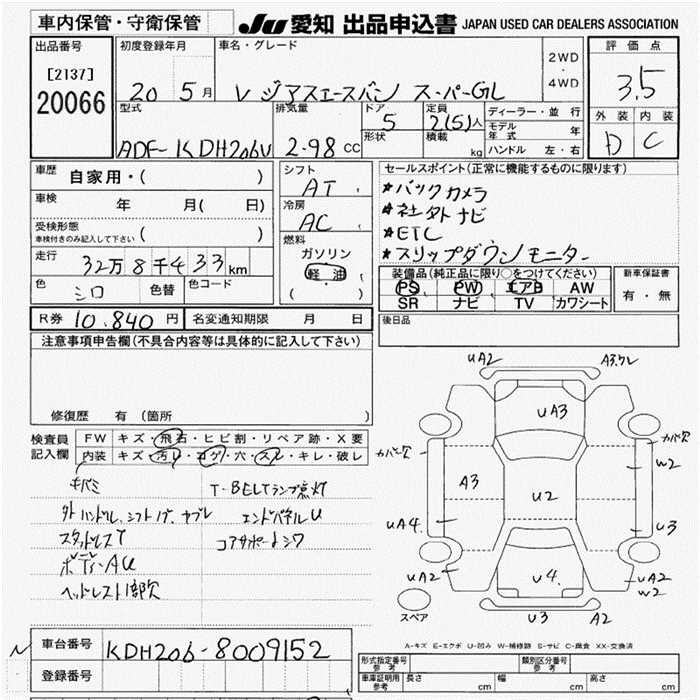 車内保管・守衛保管
JU 愛知 出品申込書 JAPAN USED CAR DEALERS ASSOCIATION
出品番号
[2137]
20066
初度登録年月
20 5月
車名・グレード
レジアスエースバン スーパーGL
2WD
・
4WD
評価点
3.5
外装 内装
D C
型式
ADF-KDH206V
排気量
2-98 CC
ドア
5
形状
定員
2(5)人
積載
kg
ディーラー・並行
モデル年式 年
ハンドル 左・右
車歴
自家用・( )
車検
年 月( 日)
受検形態
車検付きのみ記入して下さい ( )
走行
32万8千433km
色
シロ
色替
色コード
シフト
AT
冷房
AC
燃料
ガソリン
軽油
( )
セールスポイント(正常に機能するものに限ります)
*バックカメラ
*社外ナビ
*ETC
*スリップダウンモニター
装備品(純正品に限り○をつけてください)
PS PW エアB AW
SR ナビ TV カワシート
新車保証書
有・無
R券 10.840円
名変通知期限 月 日
後日品
注意事項申告欄(不具合内容等は具体的に記入して下さい)
修復歴 有(箇所 )
検査員
記入欄
FW キズ・飛石・ヒビ割・リペア跡・X要
内装 キズ・汚レ・コゲ・穴・スレ・キレ・破レ
キバミ
外ハンドル、シフトノブ、ヤブレ
スタッドレスT
ボディーAU
ヘッドレスト1部欠
T-BELTランプ点灯
エンドパネルU
コアサポートシワ
UA2
A3.ワレ
UA3
カバー欠
カバー欠
W2
A3
U2
UA4.
U3
UA2
U4.
UA2
W2
スペア
U3
A2
A-キズ E-エクボ U-凹み W-補修跡 S-サビ C-腐食 XX-交換済
車台番号
KDH206-8009152
登録番号
型式指定番号
参考
類別区分番号
参考
車庫証明用
参考
長さ cm
幅 cm
高さ cm